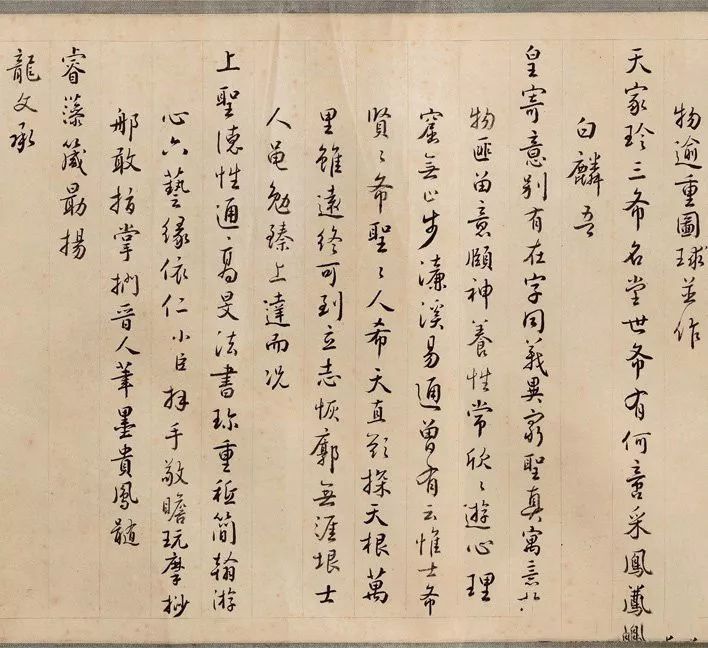 物逾重圖球並作
天家珍三希名堂世希有何啻采鳳薦
白麟吾
皇寄意别有在字同義異窮聖真寓意於
物匪留意頤神養性常欣〻遊心理
窟無止步濂溪易通曾有云惟士希
賢〻希聖〻人希天直欲探天根萬
里雖遠終可到立志恢廓無涯垠士
人黽勉臻上達而况
上聖德性通高旻法書珍重秪簡翰游
心六藝緣依仁小臣拜手敬瞻玩摩抄
那敢指掌捫晋人筆墨貴鳳髓
睿藻箴勗揚
龍文承